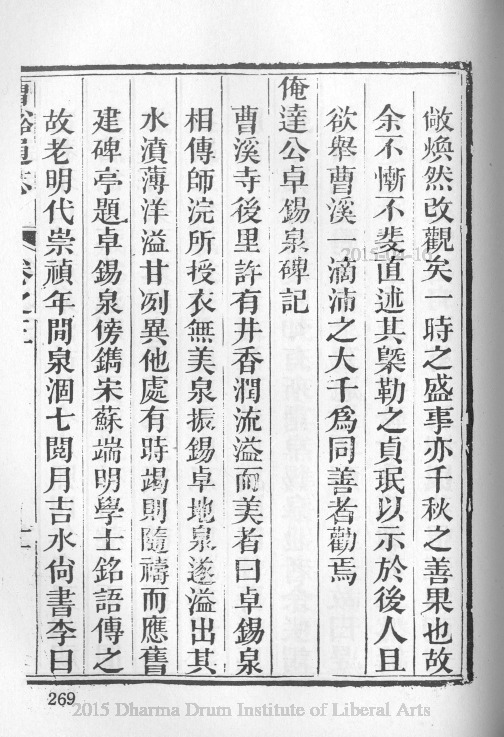 敞煥然改觀矣一時之盛事亦千秋之善果也故
余不慚不斐直述其槩勒之貞珉以示於後人且
欲舉曹溪一滴沛之大千爲同善者勸焉
俺達公卓錫泉碑記
曹溪寺後里許有井香潤流溢而美者曰卓錫泉
相傳師浣所授衣無美泉振錫卓地泉遂溢出其
水濆薄洋溢甘冽異他處有時竭則隨禱而應舊
建碑亭題卓錫泉傍鐫宋蘇端明學士銘語傳之
故老明代崇禎年間泉涸七閱月吉水尙書李日
卷之三
269
2015 Dharma Drum Institute of Liberal Arts